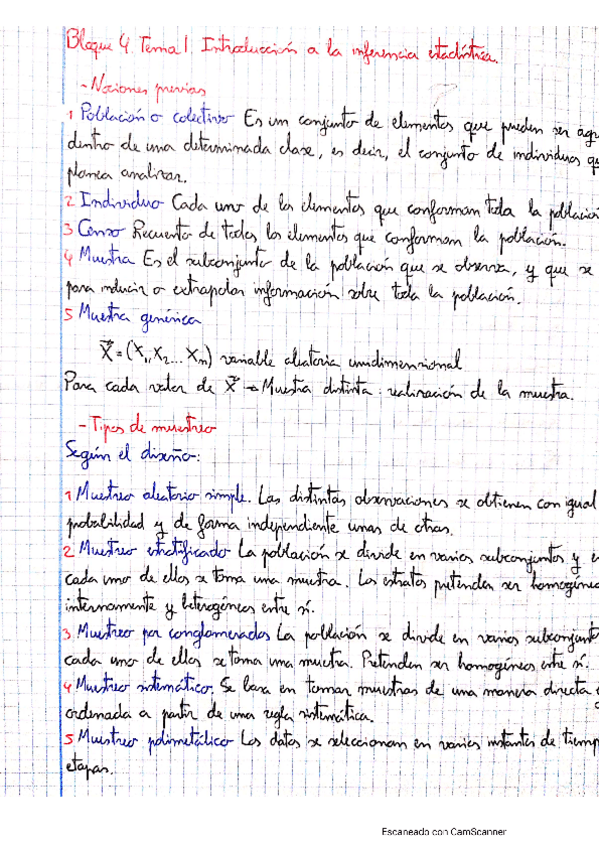 Bloque 4 Tema 1. Introducción a la inferencia estadística.
- Nociones previas
1 Población o colectivo Es un conjunto de elementos que pueden ser agru
dentro de una determinada clase, es decir, el conjunto de individuos qu
planea analizar.
2 Individuo Cada uno de los elementos que conforman toda la población
3 Censo Recuento de todos los elementos que conforman la población.
4 Muestra Es el subconjunto de la población que se observa, y que se
para inducir o extrapolar información sobre toda la población.
5 Muestra genérica
X⃗ = (X₁, X₂... Xₙ) variable aleatoria unidimensional
Para cada valor de X⃗ → Muestra distinta: realización de la muestra.
- Tipos de muestreo
Según el diseño:
1 Muestreo aleatorio simple. Las distintas observaciones se obtienen con igual
probabilidad y de forma independiente unas de otras.
2 Muestreo estratificado La población se divide en varios subconjuntos y e
cada uno de ellos se toma una muestra. Los estratos pretenden ser homogéneo
internamente y heterogéneos entre sí.
3 Muestreo por conglomerados La población se divide en varios subconjunto
cada uno de ellos se toma una muestra. Pretenden ser homogéneos entre sí.
4 Muestreo sistemático. Se basa en tomar muestras de una manera directa
ordenada a partir de una regla sistemática.
5 Muestreo polimetálico Los datos se seleccionan en varios instantes de tiemp
etapas.
Escaneado con CamScanner